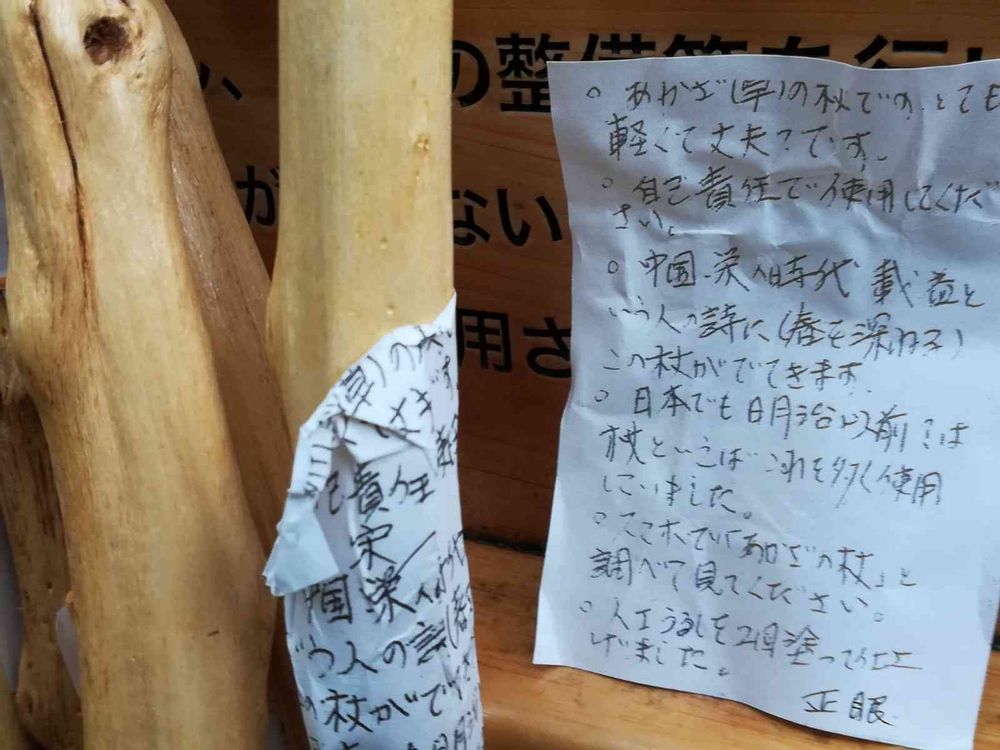 の整備等を行い
が
ない
用さ
○ あかざ(草)の杖です。とても
軽くて丈夫です。
○ 自己責任で使用してくだ
さい。
○ 中国 栄の時代 載益と
いう人の詩に(春を深ねる)
この杖がでてきます。
○ 日本でも明治以前は
杖といえば これを多く使用
していました。
○ スマホで「あかざの杖」と
調べて見てください。
○ 人工うるしを2回塗って仕上
げました。
正眼
草)の杖
丈夫です。
己責任
宋
中国 栄
いう人の詩(春
の杖がでてき